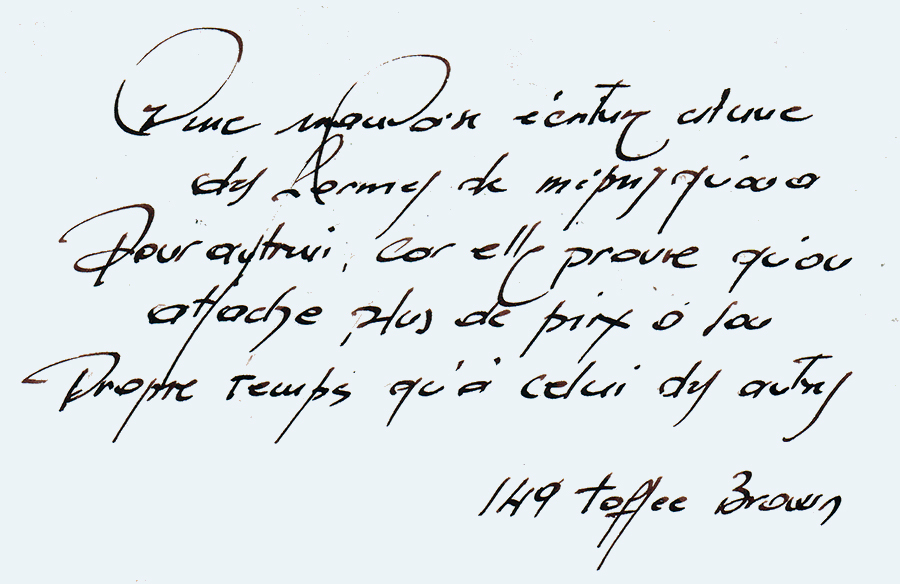 Une mauvaise écriture est une
des formes de mépris qu'on a
Pour autrui, car elle prouve qu'on
attache plus de prix à son
Propre temps qu'à celui des autres
149 Toffee Brown